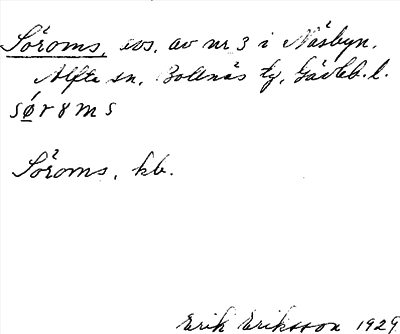 Söroms, avs. av nr 3 i Näsbyn,
Alfta sn, Bollnäs tg, Gävleb. l.
sørɤms
Söroms, kb.
Erik Eriksson 1929